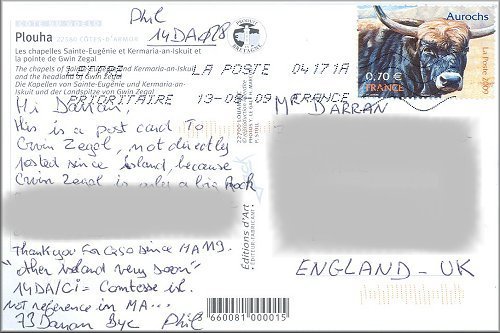 Phil
14DAØ18
CÔTE DU GOËLO
Plouha 22580 CÔTES-D'ARMOR
Les chapelles Sainte-Eugénie et Kermaria-an-Iskuit et
la pointe de Gwin Zegal
The chapels of Sainte-Eugénie and Kermaria-an-Iskuit
and the headland of Gwin Zegal
Die Kapellen von Sainte-Eugénie und Kermaria-an-
Iskuit und der Landspitze von Gwin Zegal
LETTRE LA POSTE 04171A
PRIORITAIRE 13-08-09 FRANCE
Aurochs
0,70 €
FRANCE
La Poste
PRODUIT EN BRETAGNE
Mr DARRAN
Hi Darran!
this is a post card To
Gwin Zegal, not directly
posted since island, because
Gwin Zegal is only a big Rock
Thank you for QSO since MA119.
"other island very soon"
14DA/Ci = Comtesse isl.
not reference in MA...
73 Darran Bye Phil
Editions d'Art
ENGLAND - UK
660081 000015